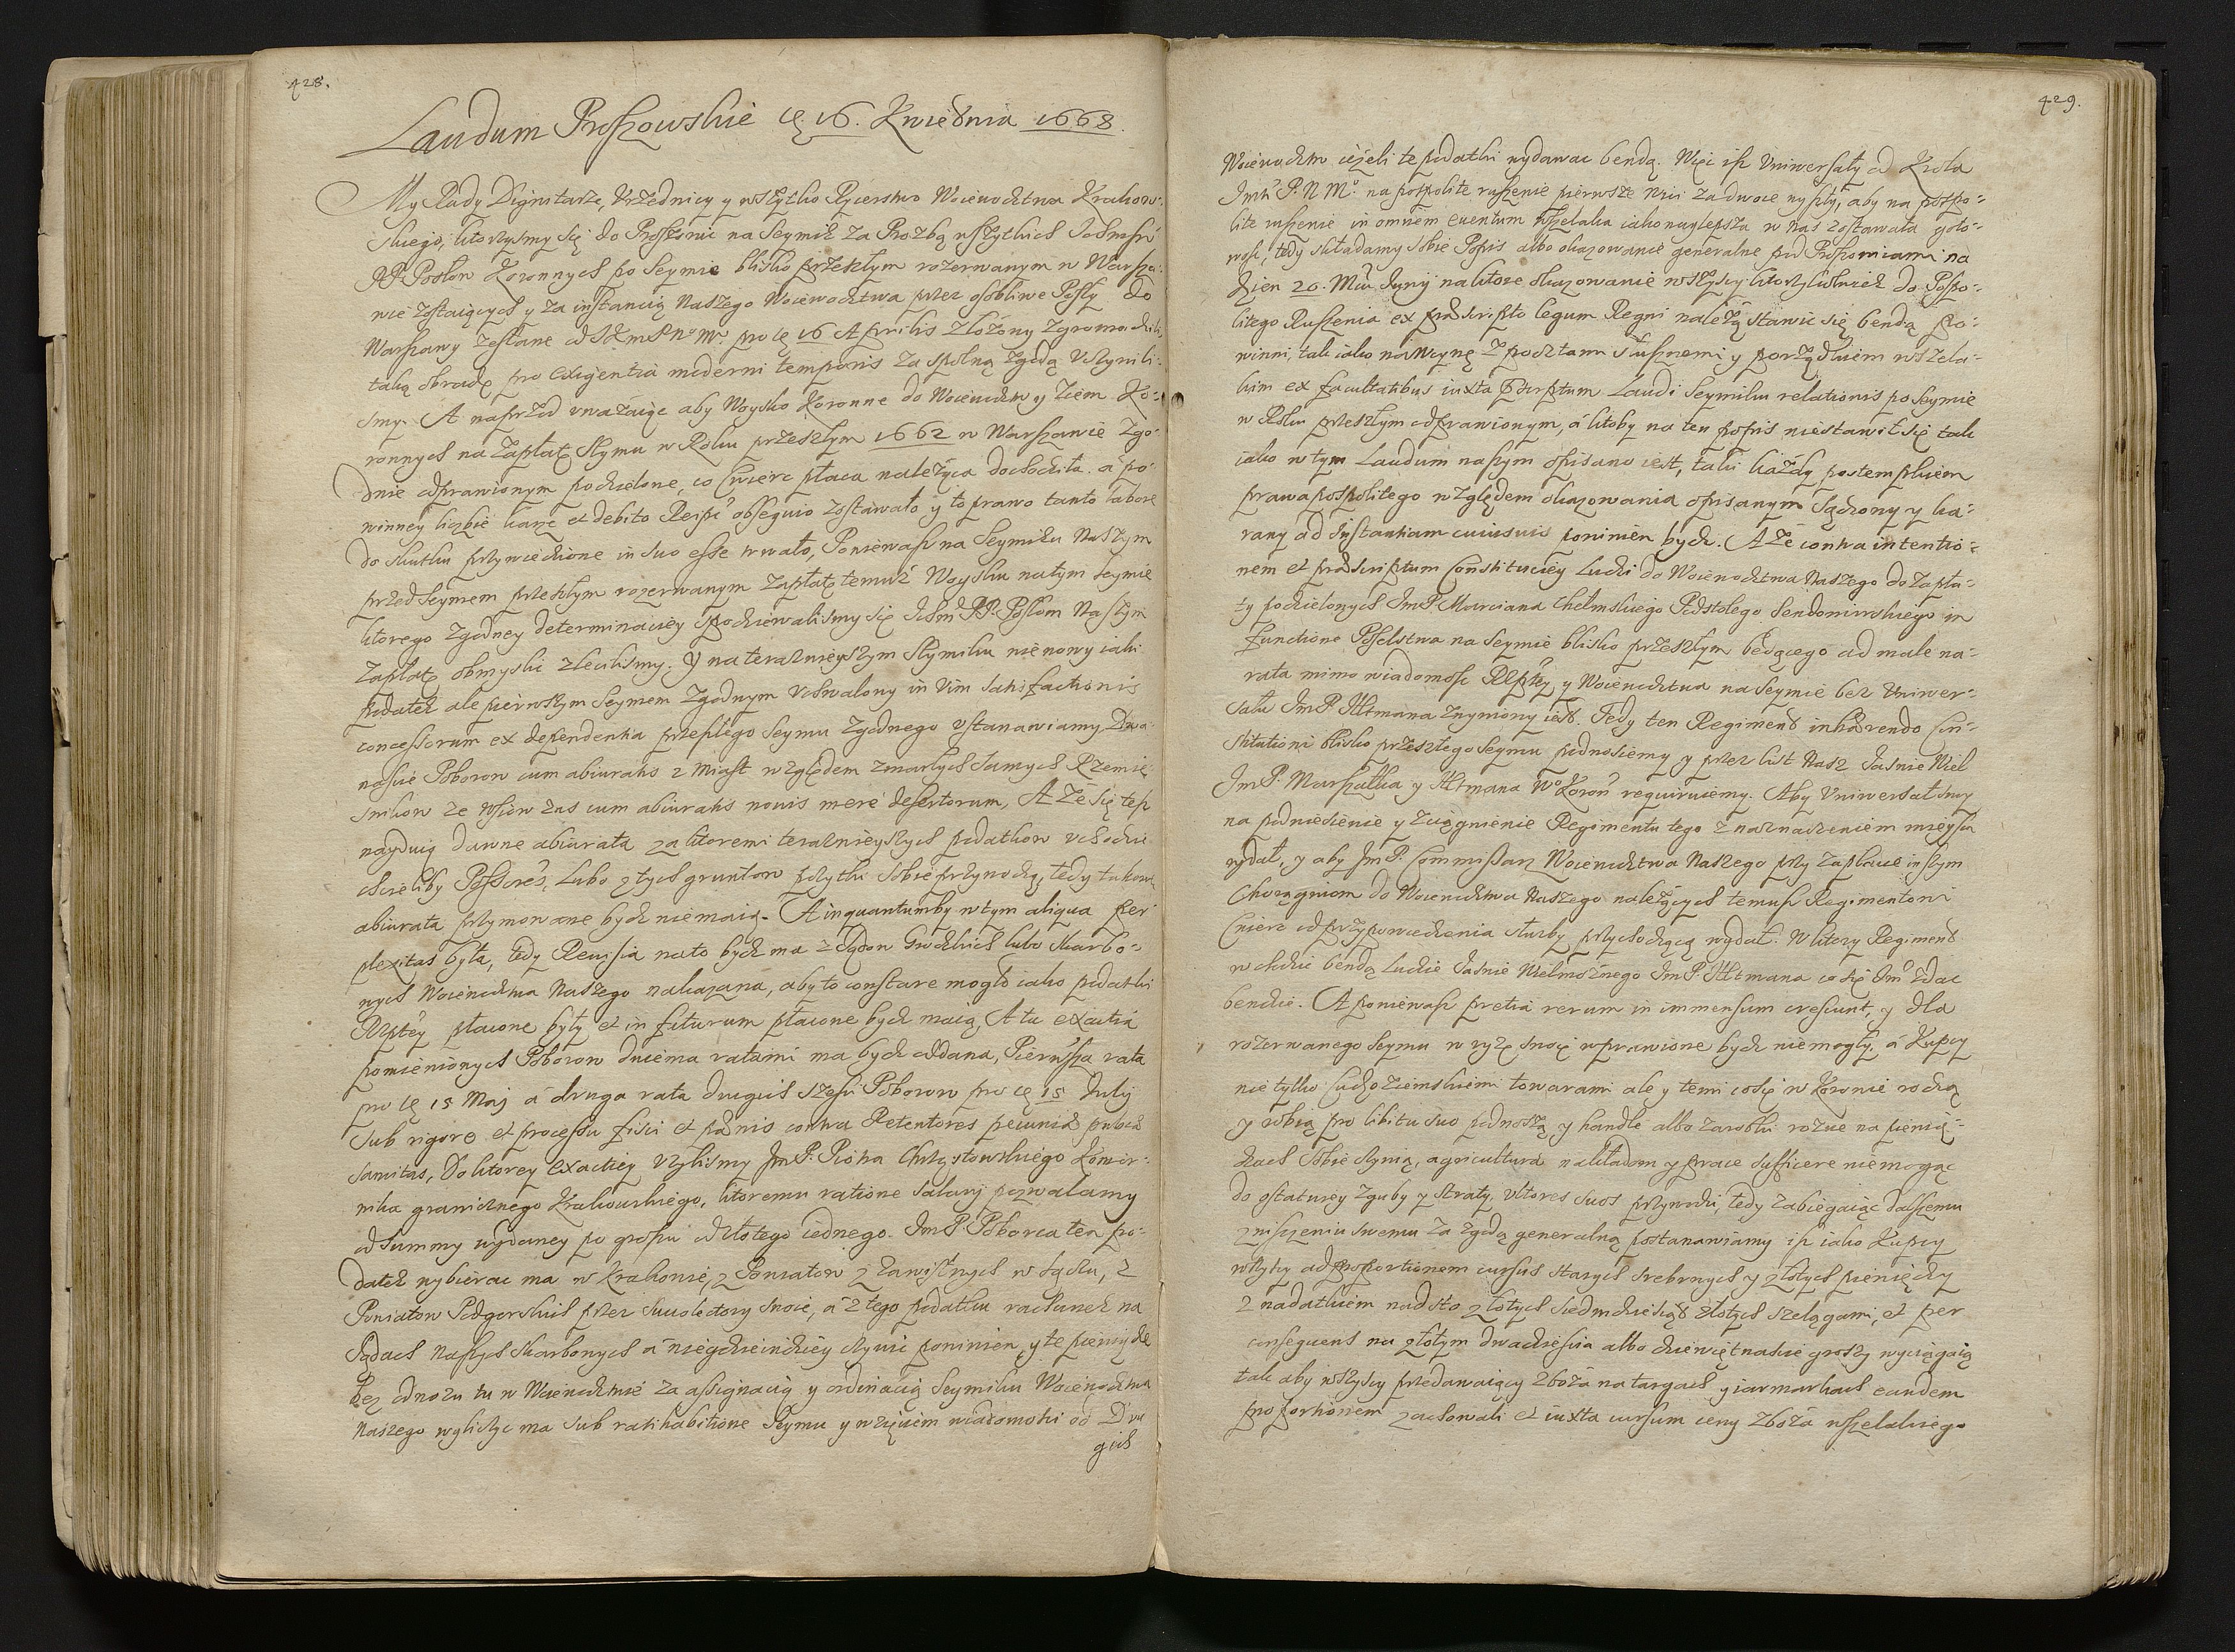 428.
Laudum Proszowskie 16. Kwietnia 1668.
My Rady Dignitarze, Vrzednicy y wszytko Rycerstwo Woiewodztwa Krakow-
skiego, ktorzysmy się do Proszowic na Seymik za Prozbą wszytkich Ichmśćiow
PP. Posłow Koronnych po Seymie blisko przeszłym rozerwanym w Warsza-
wie zostaiących y za instancią Naszego Woiewodztwa przez osobliwe Posły do
Warszawy zesłane od pro 16 Aprilis złożony zgromadzili,
taką obradę pro exigentia moderni temporis za społną zgodą vczynili-
smy. A naprzod vważaiąc aby Woysko Koronne do Woiewodztw y Ziem Ko-
ronnych na zapłatę Seymu w Roku przeszłym 1662 w Warszawie zgo-
dnie odprawionym podzielone, co cwierc płaca należyca dochodziła. á po-
winney liczbie karze et debito Reipce obsequio zostawało y to prawo tanto labore
do skutku przywiedzione in suo esse trwało, Poniewasz na Seymiku Naszym
przed Seymem przeszłym rozerwanym zapłatę temuż Woysku na tym Seymie
ktorego zgodney determinaciey spodziewalismy się Ichm PP. Posłom Naszym
Zapłatę obmyslic zlecilismy. Y na terazniejszym Seymiku nie nowy iaki
podatek ale pierwszym Seymem zgodnym vchwalony in vim satisfactionis
concessorum ex dependentia przeszłego Seymu zgodnego vstanawiamy Dwa-
nascie Poborow cum abiuratis z Miast względem zmarłych samych Rzemie-
snikow ze wsiow zas cum abiuratis nouis mere desertorum, A że się tesz
nayduią dawne abiurata za ktoremi terazniejszych podatkow vchodzic
chcieliby Possores, Lubo z tych gruntow pożytki sobie przywodzą, tedy takowe
abiurata przymowane bydz nie maią. A inquantumby w tym aliqua per-
plexitas była, tedy Reuisia na to bydz ma z Sądow Grodzkich lubo Skarbo-
nych Woiewodztwa Naszego nakazana, aby to constare mogło iako podatki
Rzptey płacone były et in futurum płacone bydz maią, A ta exactia
pomienionych Poborow dwiema ratami ma bydz oddana, Pierwsza rata
pro 15 Maj á druga rata drugich szesci Poborow pro 15 Julij
sub rigore et processu fisci et pænis contra Retentores pecuniæ publicæ
sancitas, Do ktorey exactiey vzylismy JmP. Piotra Chrzystowskiego Komor-
nika granicznego Krakowskiego, ktoremu ratione salarij pozwalamy
od summy wydaney po groszu od złotego iednego. JmP. Poborca ten po-
datek wybierac ma w Krakowie, z Powiatow zawisłych w Sączu, z
Powiatow Podgorskich przez succollectory swoie, á z tego podatku rachunek na
Sądach Naszych Skarbonych á nie gdzieindziey czynic powinien, y te pieniądze
bez odwozu tu w Woiewodztwie za assignacią y ordinacią Seymiku Woiewodztwa
Naszego wyliczyc ma sub ratihabitione Seymu y wzięciem wiadomosci od Dru
gich
429.
Woiewodztw ieżeli te podatki wydawac bendą. Więc isz Vniwersały od Krola
Jmści P. N. Mo. na pospolite ruszenie pierwsze Wici za dwoie wyszły, aby na pospo-
lite ruszenie in omnem euentum wszelaka iako naylepsza w nas zostawała goto-
wosc, tedy składamy sobie Popis albo okazowanie generalne pod Proszowicami na
dzien 26. Junij na ktore okazowanie wszyscy ktorzykolwiek do Pospo-
litego Ruszenia ex præscripto legum Regni należą stawic się bendą po-
winni, tak iako na woynę z pocztami słusznemi y porządkiem wszela-
kim ex facultatibus iuxta pscriptum Laudi Seymiku relationis po Seymie
w Roku przeszłym odprawionym, á ktoby na ten popis niestawił się tak
iako w tym Laudum naszym opisano iest, taki każdy postempkiem
prawa pospolitego względem okazowania opisanym Sądzony y ka-
rany ad Instantiam cuiusuis powinien bydz. A że contra intentio-
nem et præscriptum Constituciey Ludzi do Woiewodztwa Naszego do zapła-
ty podzielonych JmP. Marciana Chełmskiego Podstolego Sendomirskiego in
functione Poselstwa na Seymie blisko przeszłym będącego ad male na-
rata mimo wiadomosc Rzptey y Woiewodztwa na Seymie bez Vniwer-
sału JmP. Hetmana zwyniony iest. Tedy ten Regiment inhærendo Con-
stitutioni blisko przeszłego Seymu podnosiemy y przez list Nasz Jasnie Wiel
JmP. Marszałka y Hetmana Wo Koron requiruiemy. Aby Vniwersał swoy
na podniesienie y zciągnienie Regimentu tego z naznaczeniem mieysca
wydał, y aby JmP. Commissarz Woiewodztwa Naszego przy zapłacie inszym
Chorągwiom do Woiewodztwa Naszego należących temusz Regimentowi
Cwierc od przypowiedzenia służby przychodzącą wydał. W ktory Regiment
wchodzic bendą Ludzie Jasnie Wielmożnego JmP. Hetmana co się Jmci zdac
bendzie. A poniewasz pretia rerum in immensum crescunt, y dla
rozerwanego Seymu w ryzę swoię wprawione bydz nie mogły. á Kupcy
nie tylko cudzoziemskiemi towarami ale y temi co się w Koronie rodzą
y robią pro libitu suo podnoszą y handle albo zarobki rozne na pienią-
dzach sobie czynią, agricultura nakładom y prace sufficere nie mogąc
do ostatniey zguby y straty vltores suos przywodzi, tedy zabiegaiąc dalszemu
zniszczeniu swemu za zgodą generalną postanawiamy isz iako Kupcy
wszyscy ad proportionem cursus starych srebrnych y złotych pieniędzy
z nadatkiem nad sto złotych siedmdziesiąt złotych szelągami, et per
consequens na złotym dwadziescia albo dziewiętnascie groszy wyciągaią
tak aby wszyscy przedawaiący zboża na targach y iarmarkach eandem
proportionem zachowali et iuxta cursum ceny zboża wszelakiego